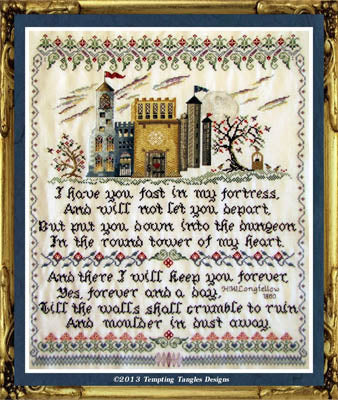 I have you fast in my fortress,
And will not let you depart,
But put you down into the dungeon
In the round tower of my heart.
And there I will keep you forever,
Yes, forever and a day,
H.W.Longfellow
1860
Till the walls shall crumble to ruin
And moulder in dust away.
©2013 Tempting Tangles Designs